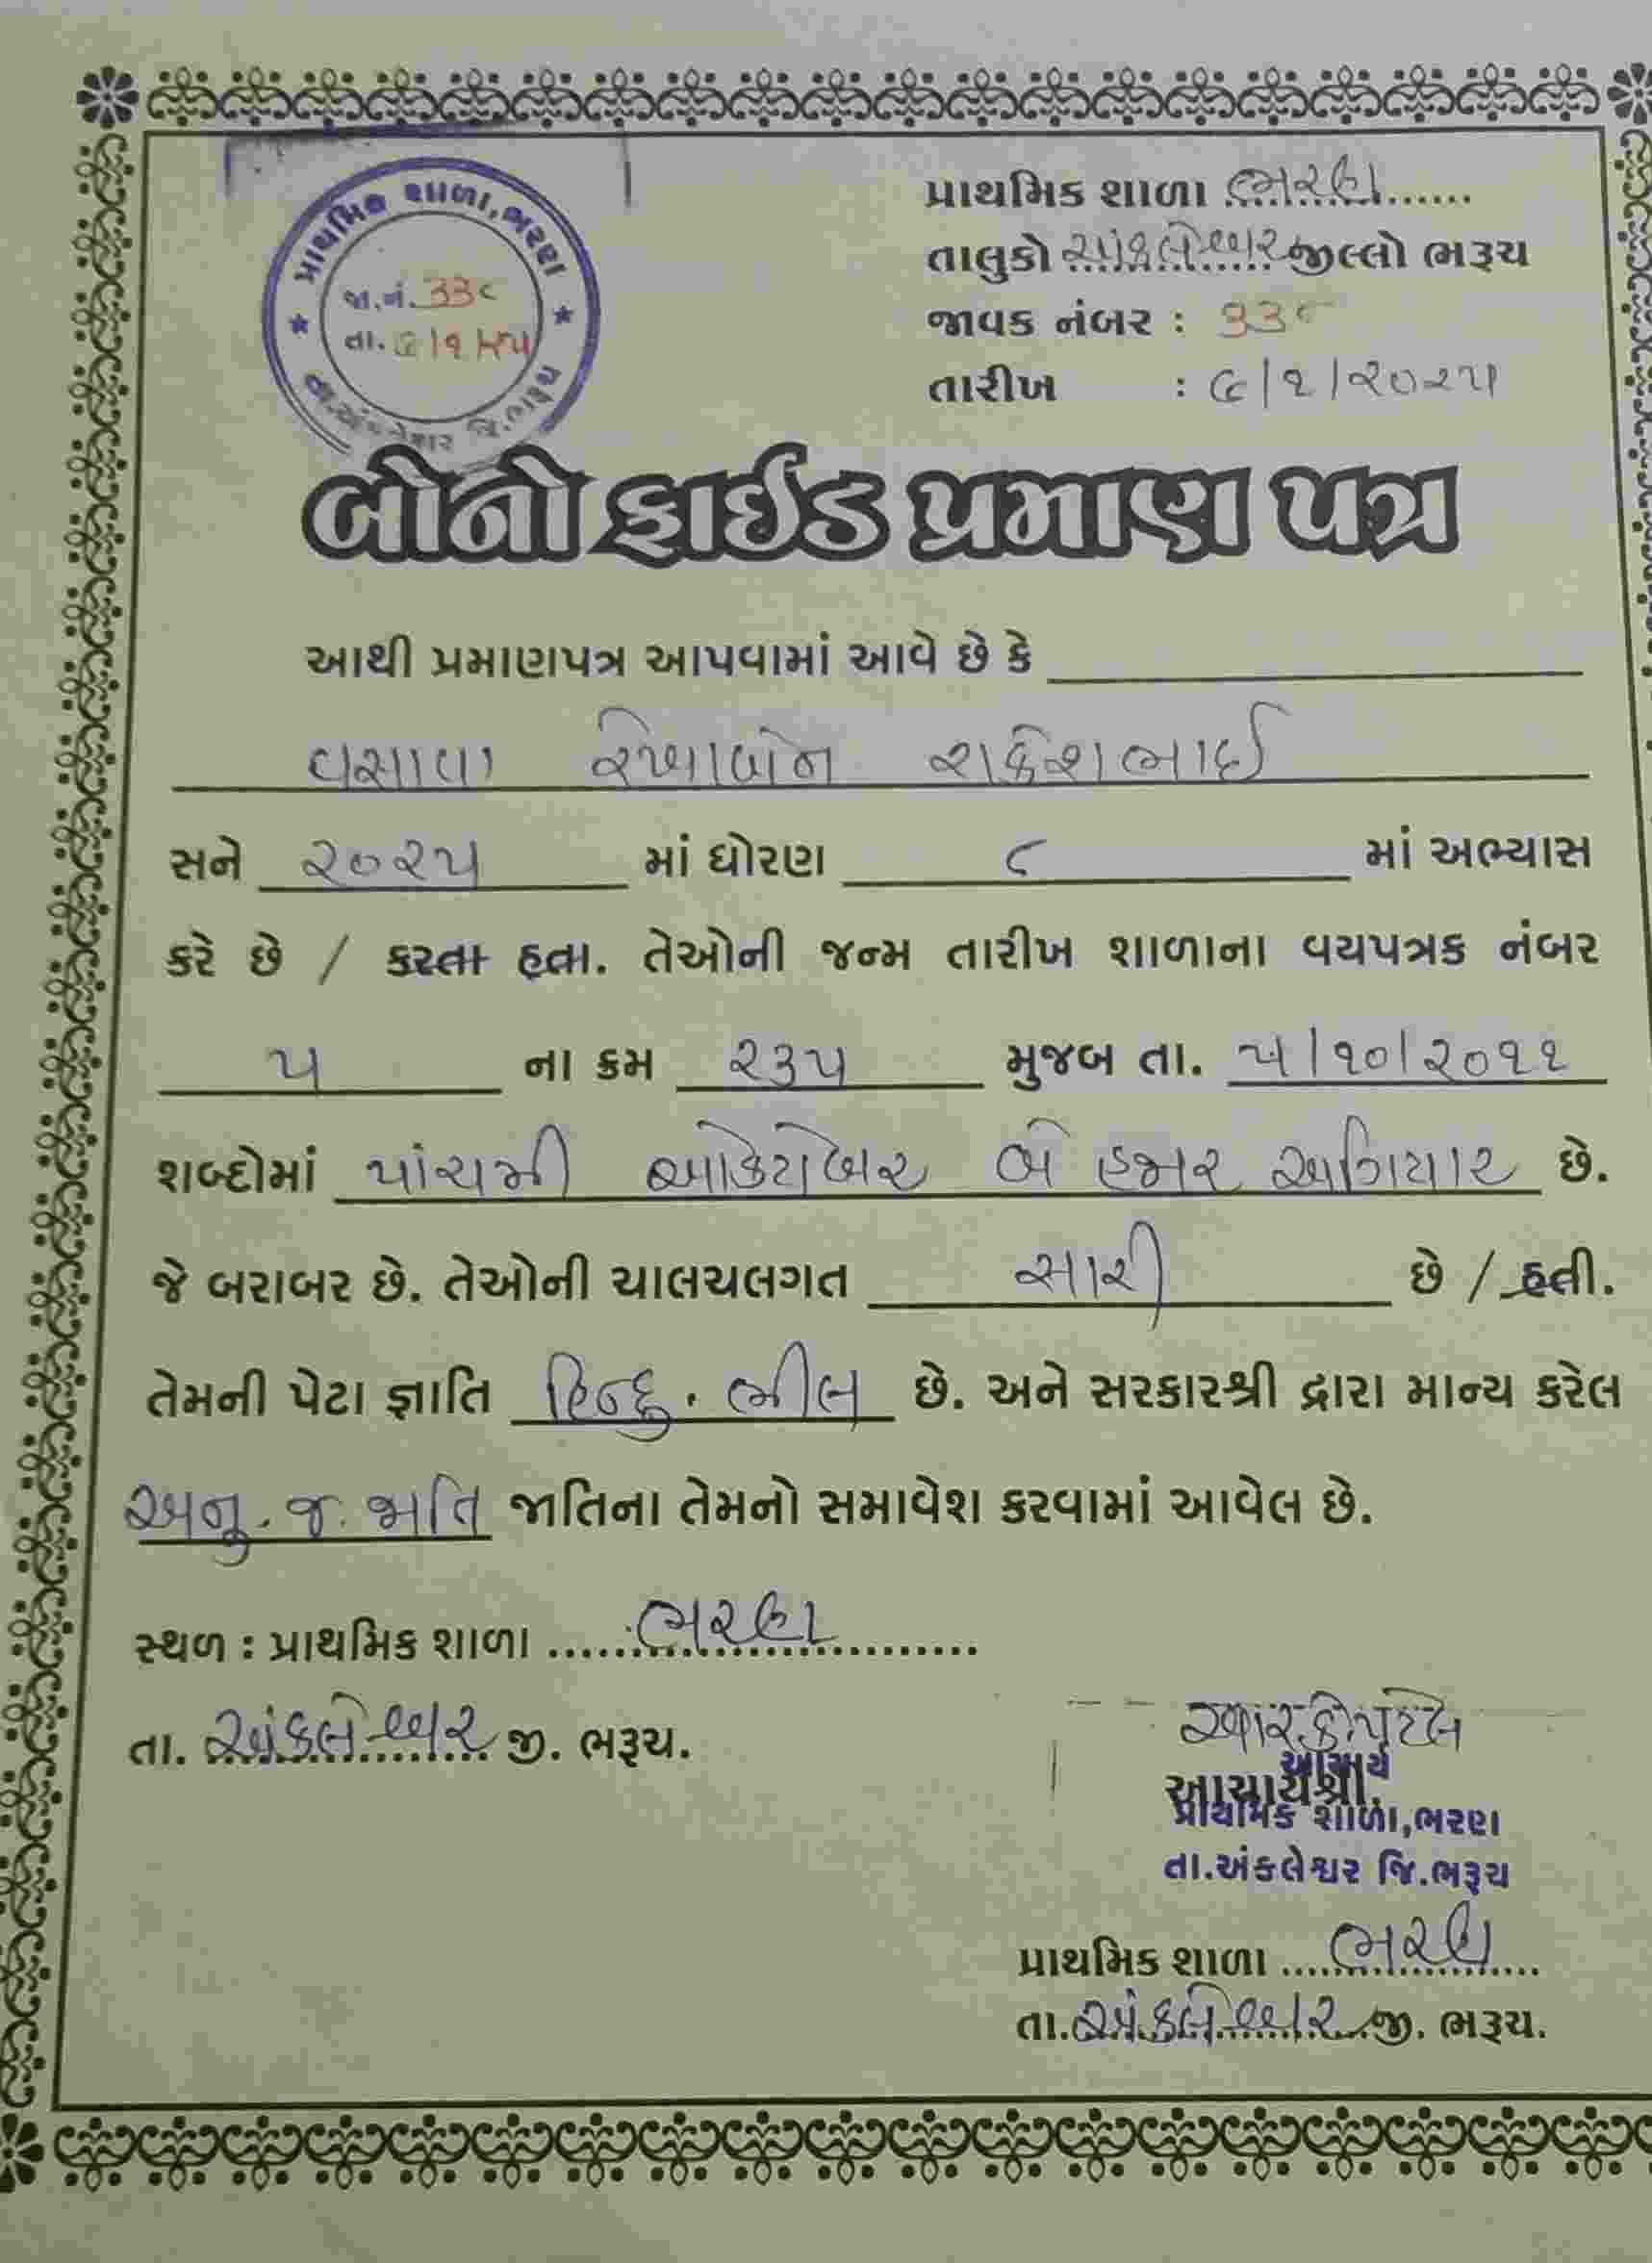 પ્રાથમિક શાળા, ભરણ
જા.નં. ૩૩૮
તા.
તા.અંકલેશ્વર જિ.ભરૂચ
પ્રાથમિક શાળા ભરણ
તાલુકો અંકલેશ્વર જીલ્લો ભરૂચ
જાવક નંબર : ૩૩૮
તારીખ : ૯/૧/૨૦૨૫
બોનો ફાઈડ પ્રમાણ પત્ર
આથી પ્રમાણપત્ર આપવામાં આવે છે કે
વસાવા રેખાબેન રાકેશભાઈ
સને ૨૦૨૫ માં ધોરણ ૮ માં અભ્યાસ
કરે છે / કરતા હતા. તેઓની જન્મ તારીખ શાળાના વયપત્રક નંબર
૫ ના ક્રમ ૨૩૫ મુજબ તા. ૫/૧૦/૨૦૧૧
શબ્દોમાં પાંચમી ઓક્ટોબર બે હજાર અગિયાર છે.
જે બરાબર છે. તેઓની ચાલચલગત સારી છે / હતી.
તેમની પેટા જ્ઞાતિ હિન્દુ. ભીલ છે. અને સરકારશ્રી દ્વારા માન્ય કરેલ
અનુ. જ. જાતિ જાતિના તેમનો સમાવેશ કરવામાં આવેલ છે.
સ્થળ : પ્રાથમિક શાળા ભરણ
તા. અંકલેશ્વર જી. ભરૂચ.
આર કે પટેલ
આચાર્ય
આચાર્યશ્રી.
પ્રાથમિક શાળા,ભરણ
તા.અંકલેશ્વર જિ.ભરૂચ
પ્રાથમિક શાળા ભરણ
તા. અંકલેશ્વર જી. ભરૂચ.